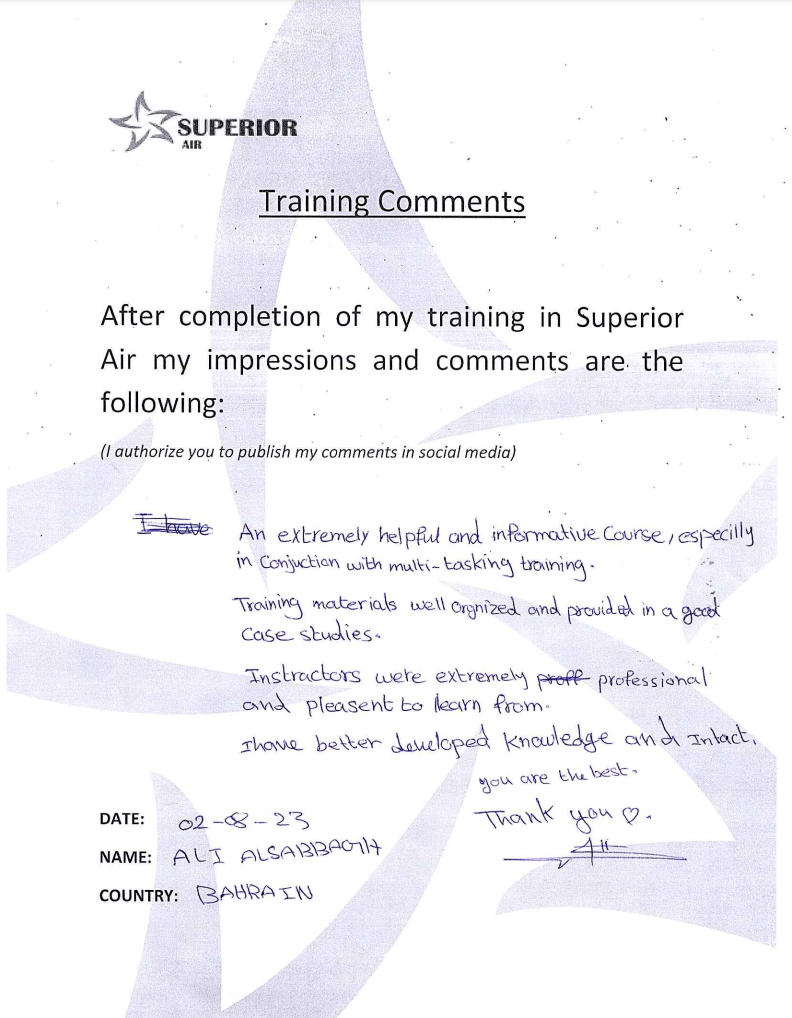 SUPERIOR
AIR
Training Comments
After completion of my training in Superior
Air my impressions and comments are the
following:
(I authorize you to publish my comments in social media)
I have An extremely helpful and informative Course, especilly
in Conjuction with multi-tasking training.
Training materials well orgnized and provided in a good
Case studies.
Instractors were extremely proff professional
and pleasent to learn from.
I have better developed knowledge and Intact.
you are the best.
Thank you ♡.
DATE: 02-08-23
NAME: ALI ALSABBAGH
COUNTRY: BAHRAIN